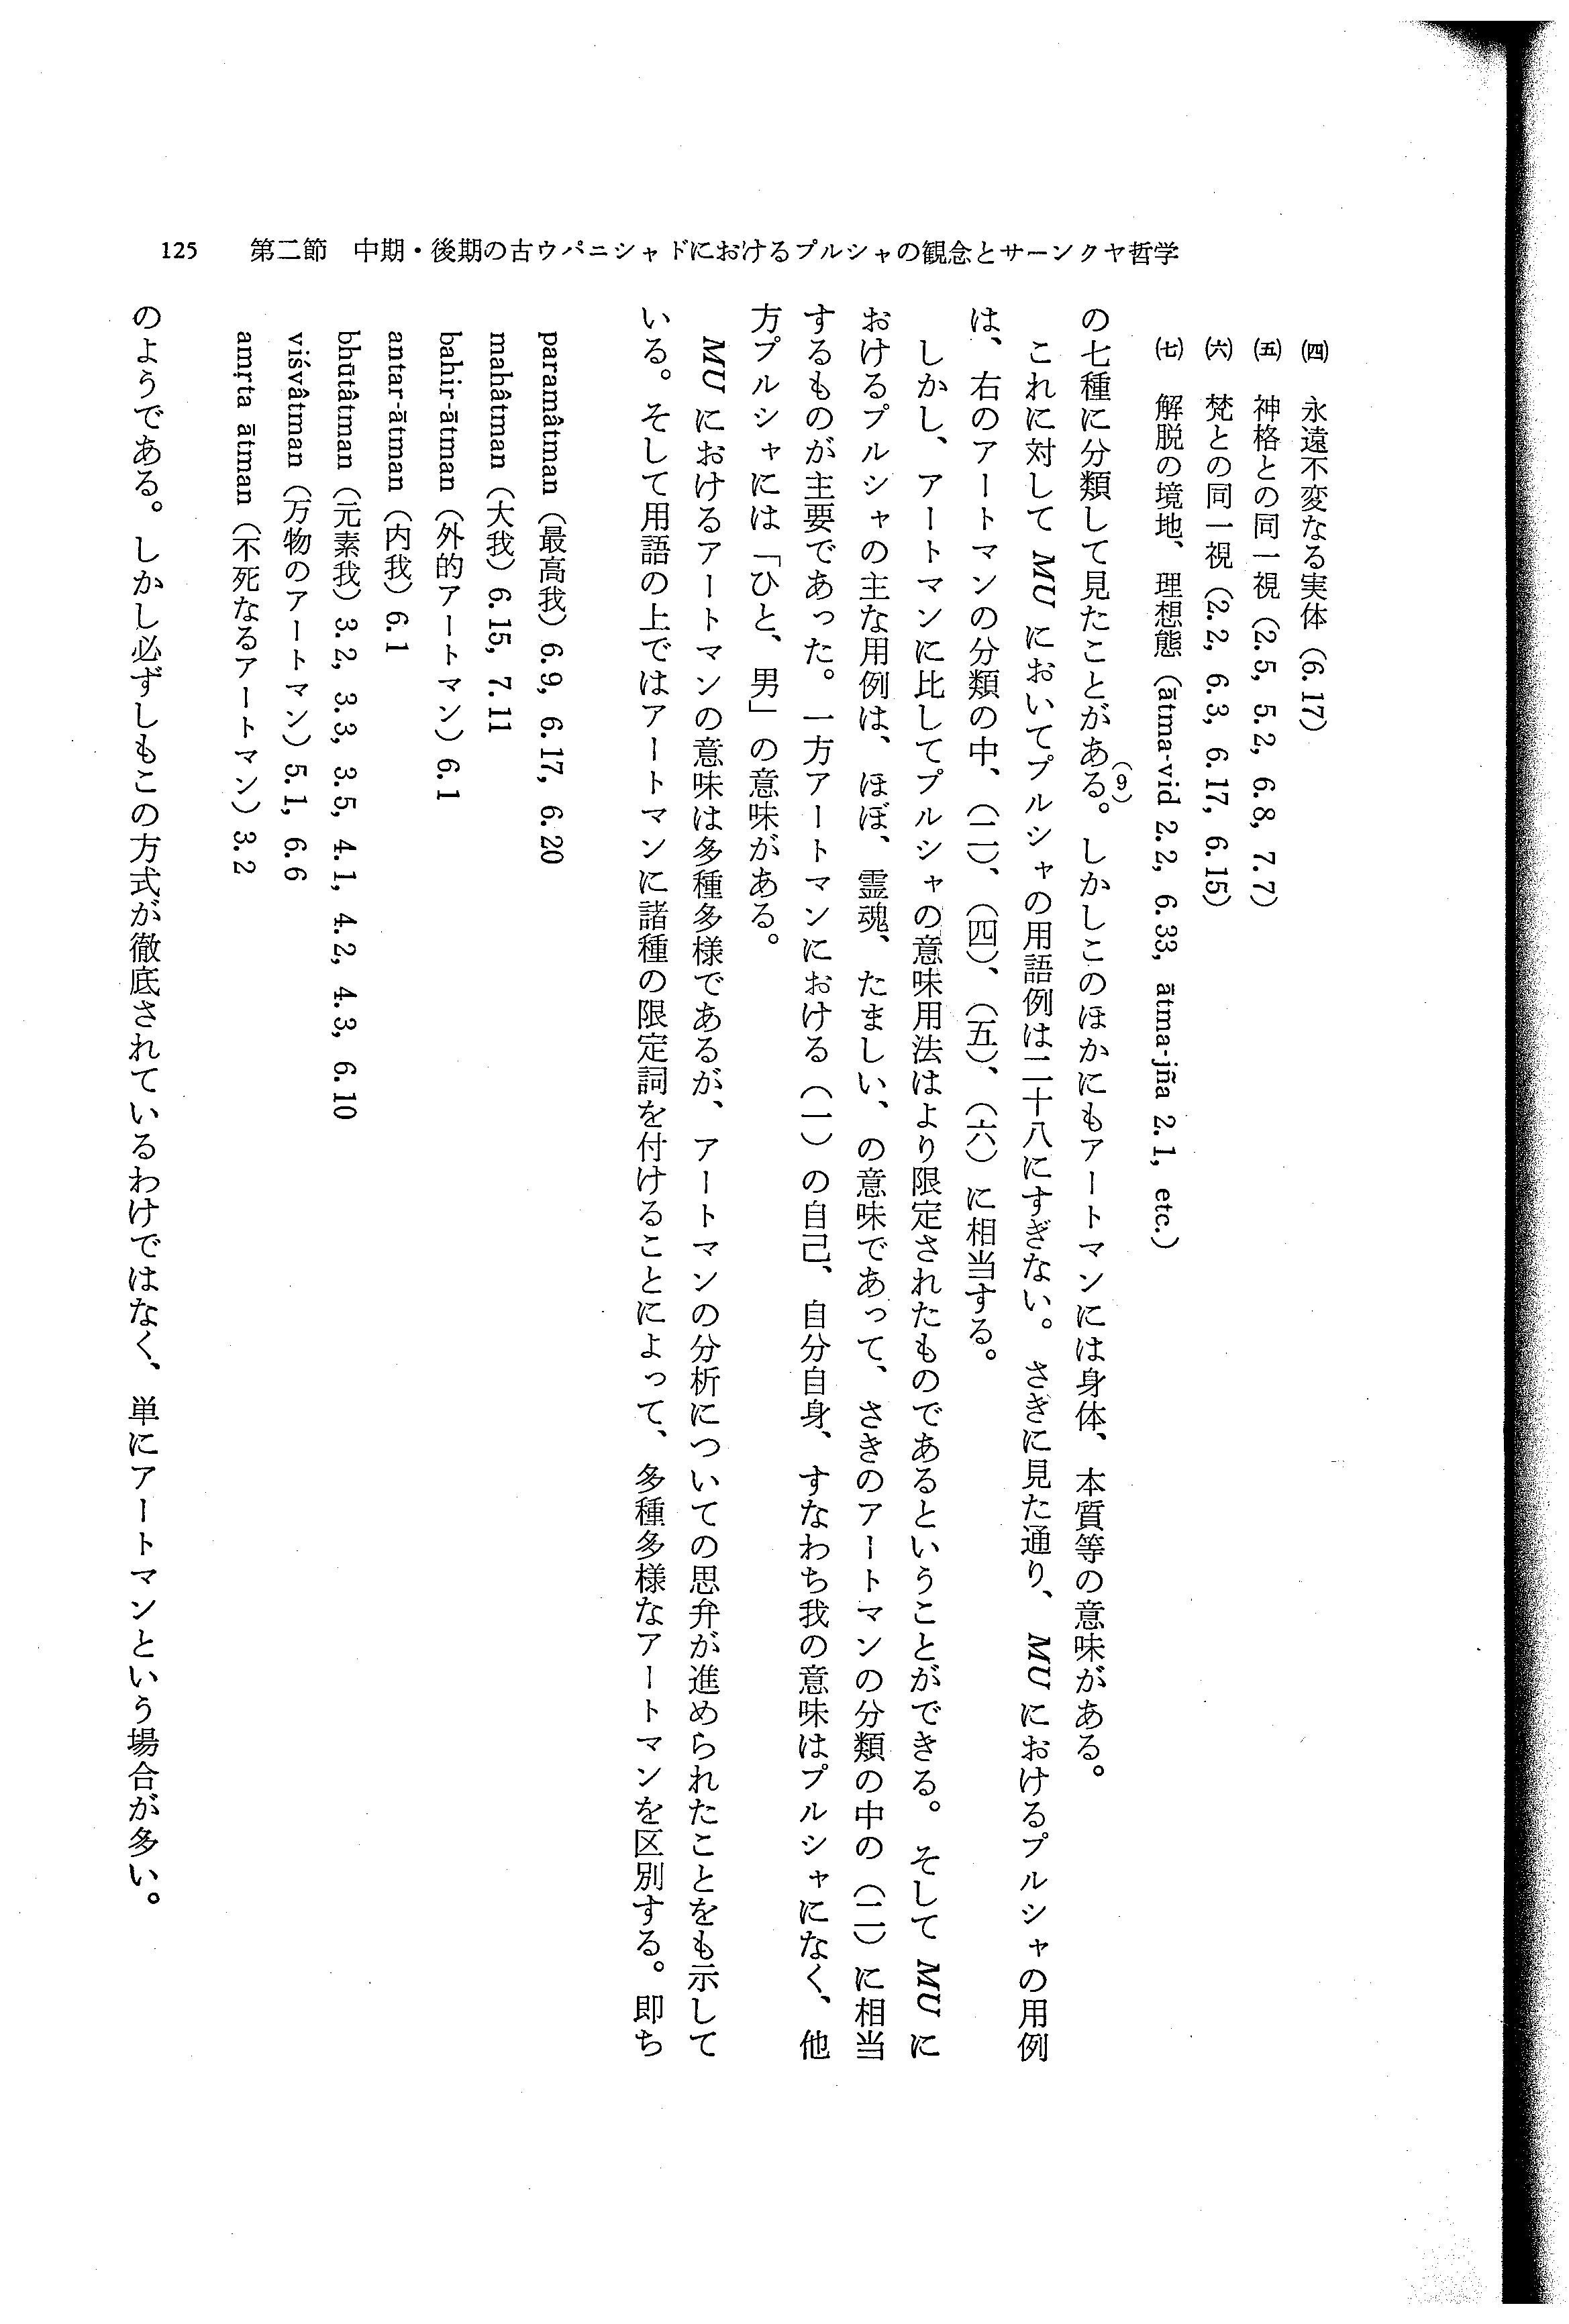 125　第二節　中期・後期の古ウパニシャドにおけるプルシャの観念とサーンクヤ哲学
㈣　永遠不変なる実体（6.17）
㈤　神格との同一視（2.5, 5.2, 6.8, 7.7）
㈥　梵との同一視（2.2, 6.3, 6.17, 6.15）
㈦　解脱の境地、理想態（ātma-vid 2.2, 6.33, ātma-jña 2.1, etc.）
の七種に分類して見たことがある(9)。しかしこのほかにもアートマンには身体、本質等の意味がある。
これに対して MU においてプルシャの用語例は二十八にすぎない。さきに見た通り、MU におけるプルシャの用例
は、右のアートマンの分類の中、（二）、（四）、（五）、（六）に相当する。
しかし、アートマンに比してプルシャの意味用法はより限定されたものであるということができる。そして MU に
おけるプルシャの主な用例は、ほぼ、霊魂、たましい、の意味であって、さきのアートマンの分類の中の（二）に相当
するものが主要であった。一方アートマンにおける（一）の自己、自分自身、すなわち我の意味はプルシャになく、他
方プルシャには「ひと、男」の意味がある。
MU におけるアートマンの意味は多種多様であるが、アートマンの分析についての思弁が進められたことをも示して
いる。そして用語の上ではアートマンに諸種の限定詞を付けることによって、多種多様なアートマンを区別する。即ち
paramâtman（最高我）6.9, 6.17, 6.20
mahâtman（大我）6.15, 7.11
bahir-ātman（外的アートマン）6.1
antar-ātman（内我）6.1
bhūtâtman（元素我）3.2, 3.3, 3.5, 4.1, 4.2, 4.3, 6.10
viśvâtman（万物のアートマン）5.1, 6.6
amṛta ātman（不死なるアートマン）3.2
のようである。しかし必ずしもこの方式が徹底されているわけではなく、単にアートマンという場合が多い。